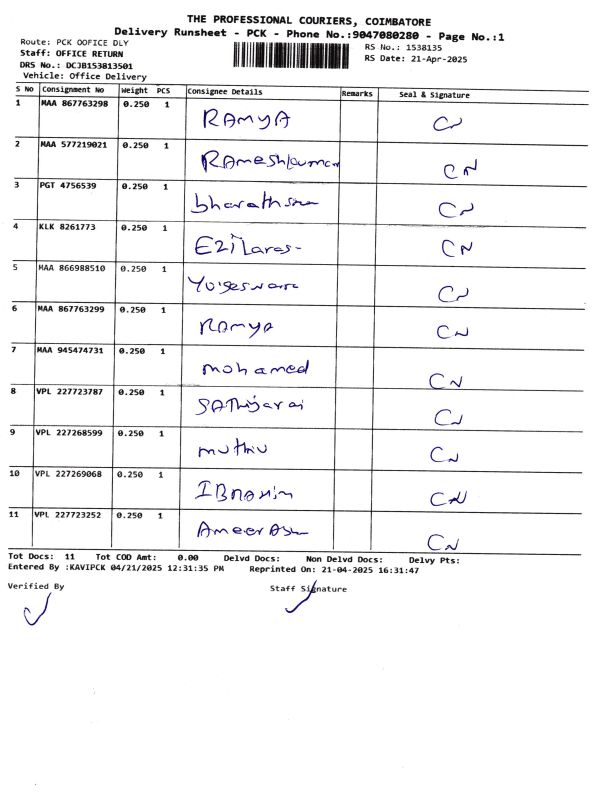 THE PROFESSIONAL COURIERS, COIMBATORE
Delivery Runsheet - PCK - Phone No.:9047080280 - Page No.:1
Route: PCK OOFICE DLY
RS No.: 1538135
Staff: OFFICE RETURN
RS Date: 21-Apr-2025
DRS No.: DCJB153813501
Vehicle: Office Delivery
S No Consignment No Weight PCS Consignee Details Remarks Seal & Signature
1 MAA 867763298 0.250 1 RAMYA CN
2 MAA 577219021 0.250 1 RAmeshkumar CN
3 PGT 4756539 0.250 1 CN
4 KLK 8261773 0.250 1 CN
5 MAA 866988510 0.250 1 CN
6 MAA 867763299 0.250 1 RAmyA CN
7 MAA 945474731 0.250 1 mohamed CN
8 VPL 227723787 0.250 1 CN
9 VPL 227268599 0.250 1 muthu CN
10 VPL 227269068 0.250 1 IBRAHim CN
11 VPL 227723252 0.250 1 CN
Tot Docs: 11 Tot COD Amt: 0.00 Delvd Docs: Non Delvd Docs: Delvy Pts:
Entered By :KAVIPCK 04/21/2025 12:31:35 PM Reprinted On: 21-04-2025 16:31:47
Verified By Staff Signature